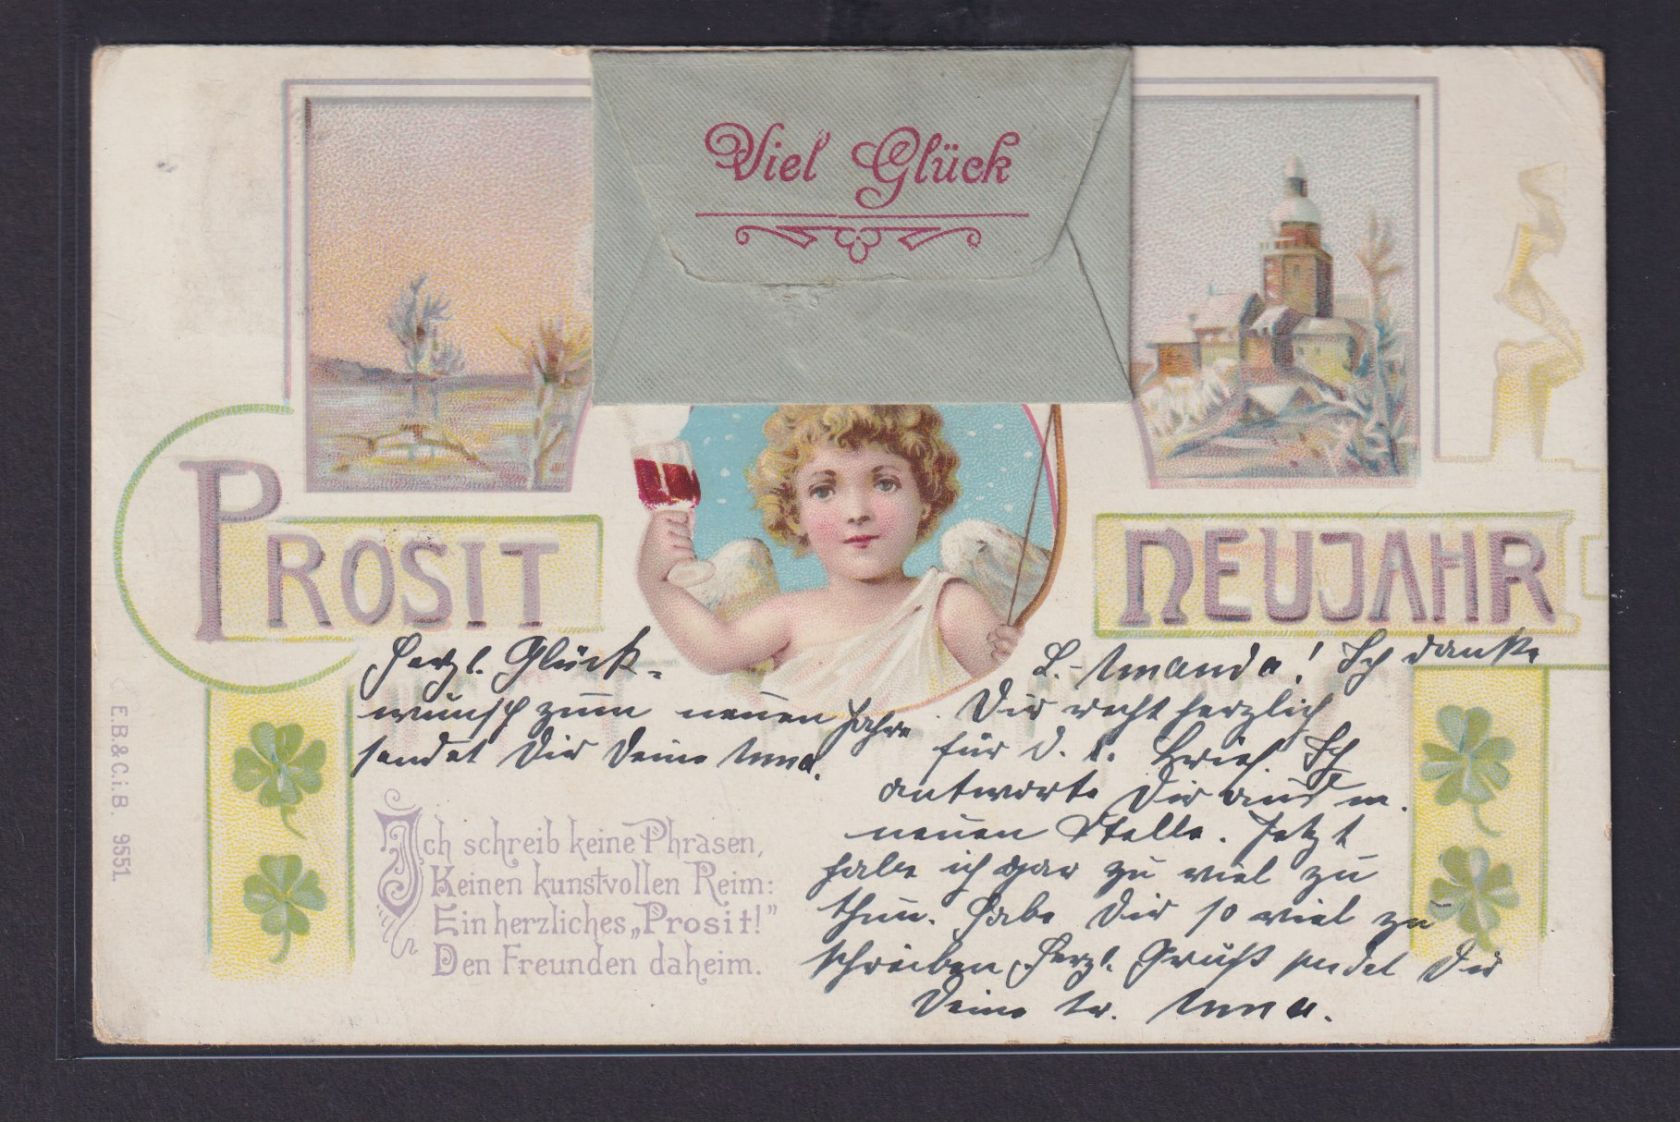 Viel Glück
PROSIT NEUJAHR
Herzl. Glück-
wunsch zum neuen Jahre
sendet Dir Deine Anna.
L. Amanda! Ich danke
Dir recht herzlich
für d. l. Brief. Ich
antworte Dir aus m.
neuen Stelle. Jetzt
habe ich gar zu viel zu
thun. Habe Dir so viel zu
schreiben. Herzl. Gruß sendet Dir
Deine tr. Anna.
Ich schreib keine Phrasen,
Keinen kunstvollen Reim:
Ein herzliches „Prosit!"
Den Freunden daheim.
E.B.&C.i.B. 9551.